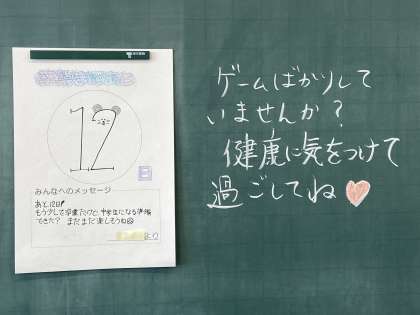 12
日
みんなへのメッセージ
あと12日!
もう少しで卒業だけど、中学生になる準備
できた? まだまだ楽しもうね
より
ゲームばかりして
いませんか?
健康に気をつけて
過ごしてね♡